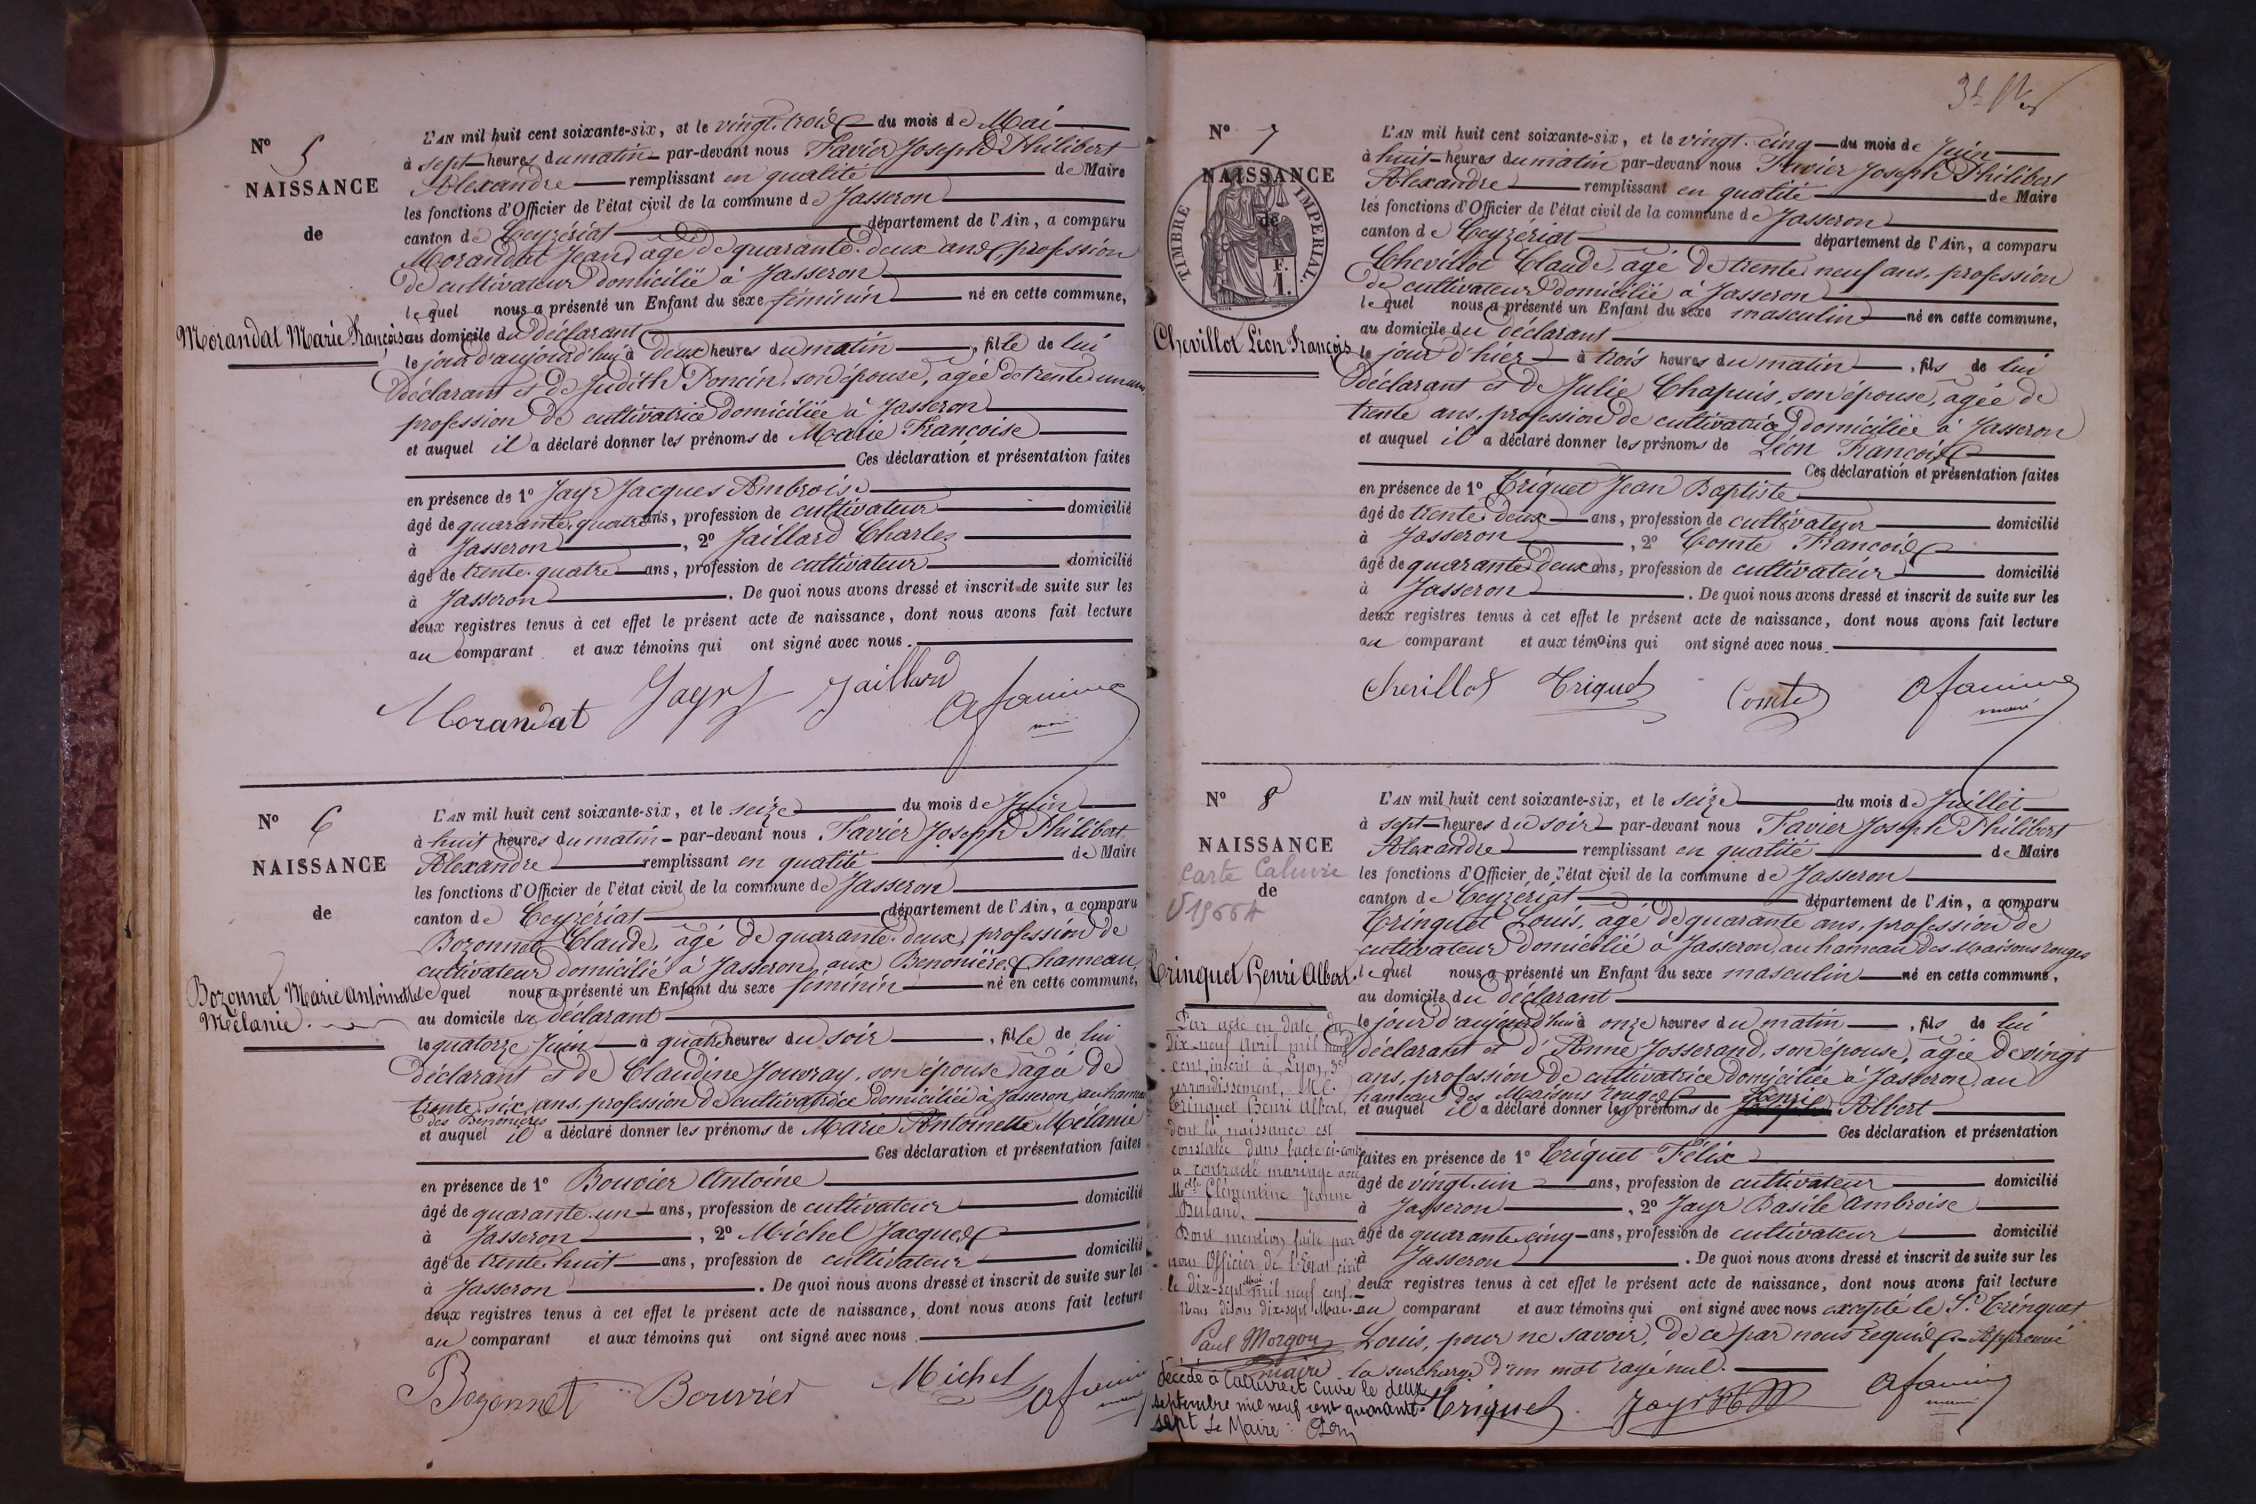 Nº 5
NAISSANCE
de
Morandat Marie Françoise
L'AN mil huit cent soixante-six, et le vingt-trois du mois de Mai
à sept heures du matin par-devant nous Favier Joseph Philibert
Alexandre remplissant en qualité de Maire
les fonctions d'Officier de l'état civil de la commune de Jasseron
canton de Ceyzériat département de l'Ain, a comparu
Morandat Jean âgé de quarante-deux ans, profession
de cultivateur domicilié à Jasseron
lequel nous a présenté un Enfant du sexe féminin né en cette commune,
au domicile du déclarant
le jour d'aujourd'hui à deux heures du matin, fille de lui
déclarant et de Judith Poncin, son épouse, âgée de trente un ans,
profession de cultivatrice domiciliée à Jasseron
et auquel il a déclaré donner les prénoms de Marie Françoise
Ces déclaration et présentation faites
en présence de 1º Jayr Jacques Ambroise
âgé de quarante-quatre ans, profession de cultivateur domicilié
à Jasseron, 2º Jaillard Charles
âgé de trente-quatre ans, profession de cultivateur domicilié
à Jasseron. De quoi nous avons dressé et inscrit de suite sur les
deux registres tenus à cet effet le présent acte de naissance, dont nous avons fait lecture
au comparant et aux témoins qui ont signé avec nous.
Morandat Jayr Jaillard Afavier
maire
Nº 6
NAISSANCE
de
Bozonnet Marie Antoinette
Mélanie.
L'AN mil huit cent soixante-six, et le seize du mois de Juin
à huit heures du matin par-devant nous Favier Joseph Philibert
Alexandre remplissant en qualité de Maire
les fonctions d'Officier de l'état civil de la commune de Jasseron
canton de Ceyzériat département de l'Ain, a comparu
Bozonnet Claude, âgé de quarante-deux, profession de
cultivateur domicilié à Jasseron aux Benonières hameau
lequel nous a présenté un Enfant du sexe féminin né en cette commune,
au domicile du déclarant
le quatorze Juin à quatre heures du soir, fille de lui
déclarant et de Claudine Jouvray, son épouse âgée de
trente-six ans, profession de cultivatrice domiciliée à Jasseron au hameau
des Benonières
et auquel il a déclaré donner les prénoms de Marie Antoinette Mélanie
Ces déclaration et présentation faites
en présence de 1º Bouvier Antoine
âgé de quarante-un ans, profession de cultivateur domicilié
à Jasseron, 2º Michel Jacques
âgé de trente-huit ans, profession de cultivateur domicilié
à Jasseron. De quoi nous avons dressé et inscrit de suite sur les
deux registres tenus à cet effet le présent acte de naissance, dont nous avons fait lecture
au comparant et aux témoins qui ont signé avec nous.
Bozonnet Bouvier Michel Afavier
Nº 7
NAISSANCE
de
TIMBRE IMPERIAL.
F.
1.
Chevillot Léon François
L'AN mil huit cent soixante-six, et le vingt-cinq du mois de Juin
à huit heures du matin par-devant nous Favier Joseph Philibert
Alexandre remplissant en qualité de Maire
les fonctions d'Officier de l'état civil de la commune de Jasseron
canton de Ceyzériat département de l'Ain, a comparu
Chevillot Claude, âgé de trente-neuf ans, profession
de cultivateur domicilié à Jasseron
lequel nous a présenté un Enfant du sexe masculin né en cette commune,
au domicile du déclarant
le jour d'hier à trois heures du matin, fils de lui
déclarant et de Julie Chapuis, son épouse, âgée de
trente ans, profession de cultivatrice domiciliée à Jasseron
et auquel il a déclaré donner les prénoms de Léon François
Ces déclaration et présentation faites
en présence de 1º Criquet Jean Baptiste
âgé de trente-deux ans, profession de cultivateur domicilié
à Jasseron, 2º Comte François
âgé de quarante-deux ans, profession de cultivateur domicilié
à Jasseron. De quoi nous avons dressé et inscrit de suite sur les
deux registres tenus à cet effet le présent acte de naissance, dont nous avons fait lecture
au comparant et aux témoins qui ont signé avec nous.
Chevillot Triquet Comte Afavier
maire
Nº 8
NAISSANCE
Carte Caluire
de
Trinquet Henri Albert.
Par acte en date du
dix-neuf Avril mil neuf
cent, inscrit à Lyon, 3e
arrondissement, Mr.
Trinquet Henri Albert,
dont la naissance est
constatée dans l'acte ci-contre
a contracté mariage avec
Melle Clémentine Jeanne
Buland.
Dont mention faite par
nous Officier de l'Etat civil
le dix-sept Avril mil neuf cent.
Nous disons dix-sept Mai.
Paul Morgon
maire
décédé à Caluire et Cuire le deux
septembre mil neuf cent quarante-
sept Le Maire :
L'AN mil huit cent soixante-six, et le seize du mois de Juillet
à sept heures du soir par-devant nous Favier Joseph Philibert
Alexandre remplissant en qualité de Maire
les fonctions d'Officier de l'état civil de la commune de Jasseron
canton de Ceyzériat département de l'Ain, a comparu
Trinquet Louis, âgé de quarante ans, profession de
cultivateur domicilié à Jasseron, au hameau des Maisons rouges
lequel nous a présenté un Enfant du sexe masculin né en cette commune,
au domicile du déclarant
le jour d'aujourd'hui à onze heures du matin, fils de lui
déclarant et d'Anne Josserand, son épouse, âgée de vingt
ans, profession de cultivatrice domiciliée à Jasseron au
hameau des Maisons rouges
et auquel il a déclaré donner les prénoms de Henri Albert
Ces déclaration et présentation
faites en présence de 1º Triquet Félix
âgé de vingt-un ans, profession de cultivateur domicilié
à Jasseron, 2º Jayr Basile Ambroise
âgé de quarante-cinq ans, profession de cultivateur domicilié
à Jasseron. De quoi nous avons dressé et inscrit de suite sur les
deux registres tenus à cet effet le présent acte de naissance, dont nous avons fait lecture
au comparant et aux témoins qui ont signé avec nous excepté le Sr. Trinquet
Louis, pour ne savoir, de ce par nous requis. Approuvé
la surcharge d'un mot rayé nul.
Triquet Jayr Afavier